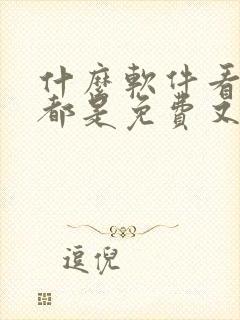 什麼軟件看
都是免費又
逗倪